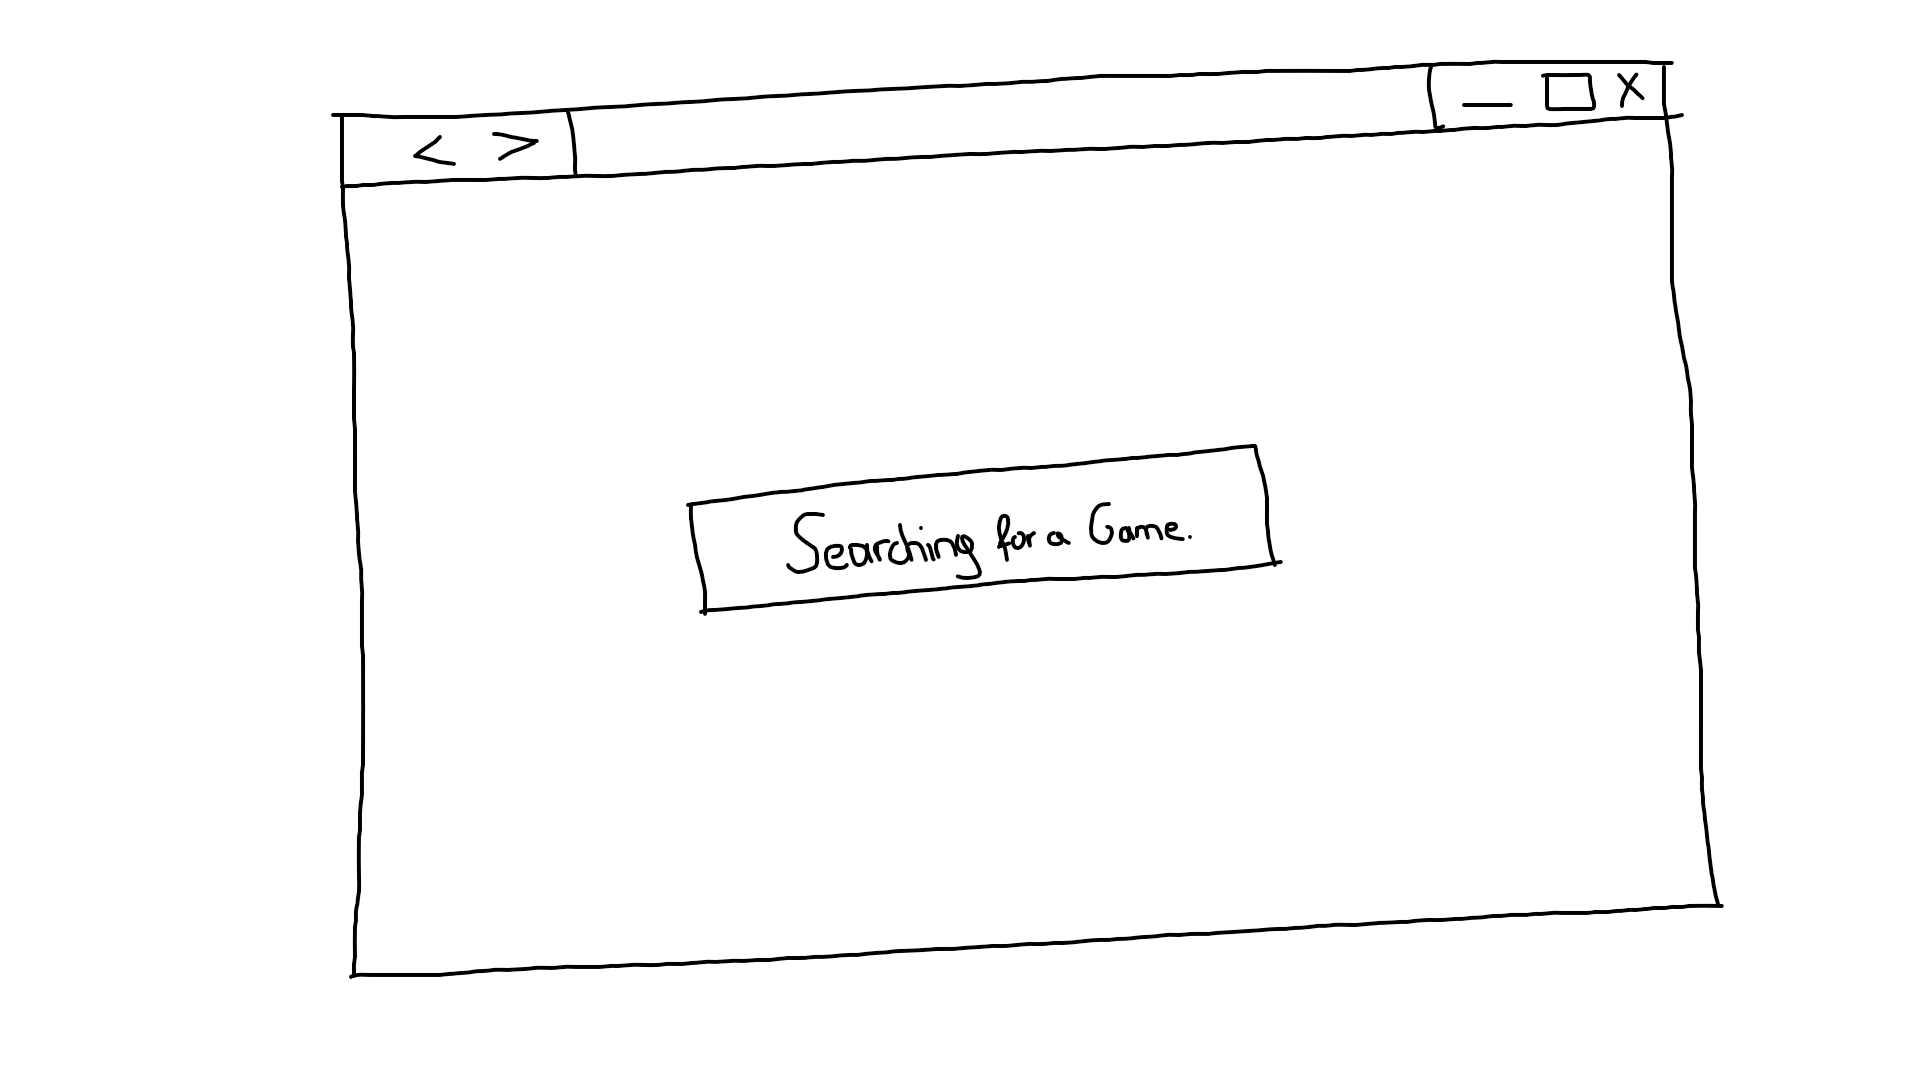 < >
X
Searching for a Game.